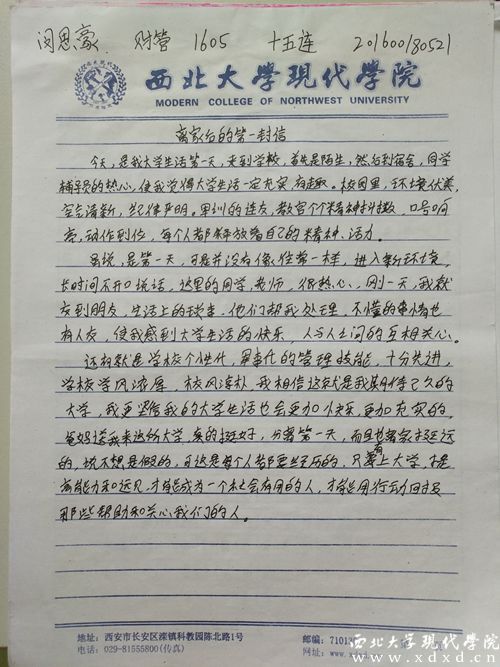 闵思豪 财管 1605 十五连 201600180521
西北大學現代學院
MODERN COLLEGE OF NORTHWEST UNIVERSITY
离家后的第一封信
今天,是我大学生活第一天,来到学校,首先是陌生,然后到宿舍,同学
辅导员的热心,使我觉得大学生活一定充实,有趣。校园里,环境优美,
空气清新,纪律严明。军训的连友,教官个个精神抖擞,口号响
亮,动作到位,每个人都释放着自己的精神、活力。
虽说,是第一天,可是并没有像往常一样,进入新环境,
长时间不开口说话,这里的同学,老师,很热心,刚一天,我就
交到朋友,生活上的琐事,他们帮我处理,不懂的事情也
有人友,使我感到大学生活的快乐,人与人之间的互相关心。
还有就是学校个性化,军事化的管理技能,十分先进,
学校学风浓厚,校风淳朴,我相信这就是我期待已久的
大学,我更坚信我的大学生活也会更加快乐,更加充实的。
爸妈送我来这所大学,真的挺好,分离第一天,而且也离家挺远
的,说不想是假的,可这是每个人都要经历的,只有上大学,才是
有能力和远见,才能成为一个社会有用的人,才能用行动回报
那些帮助和关心我们的人。
地址:西安市长安区滦镇科教园陈北路1号
电话:029-81555800(传真)
邮编:7101
网址:www.xdxd.cn
西北大学现代学院
www.xdxd.cn